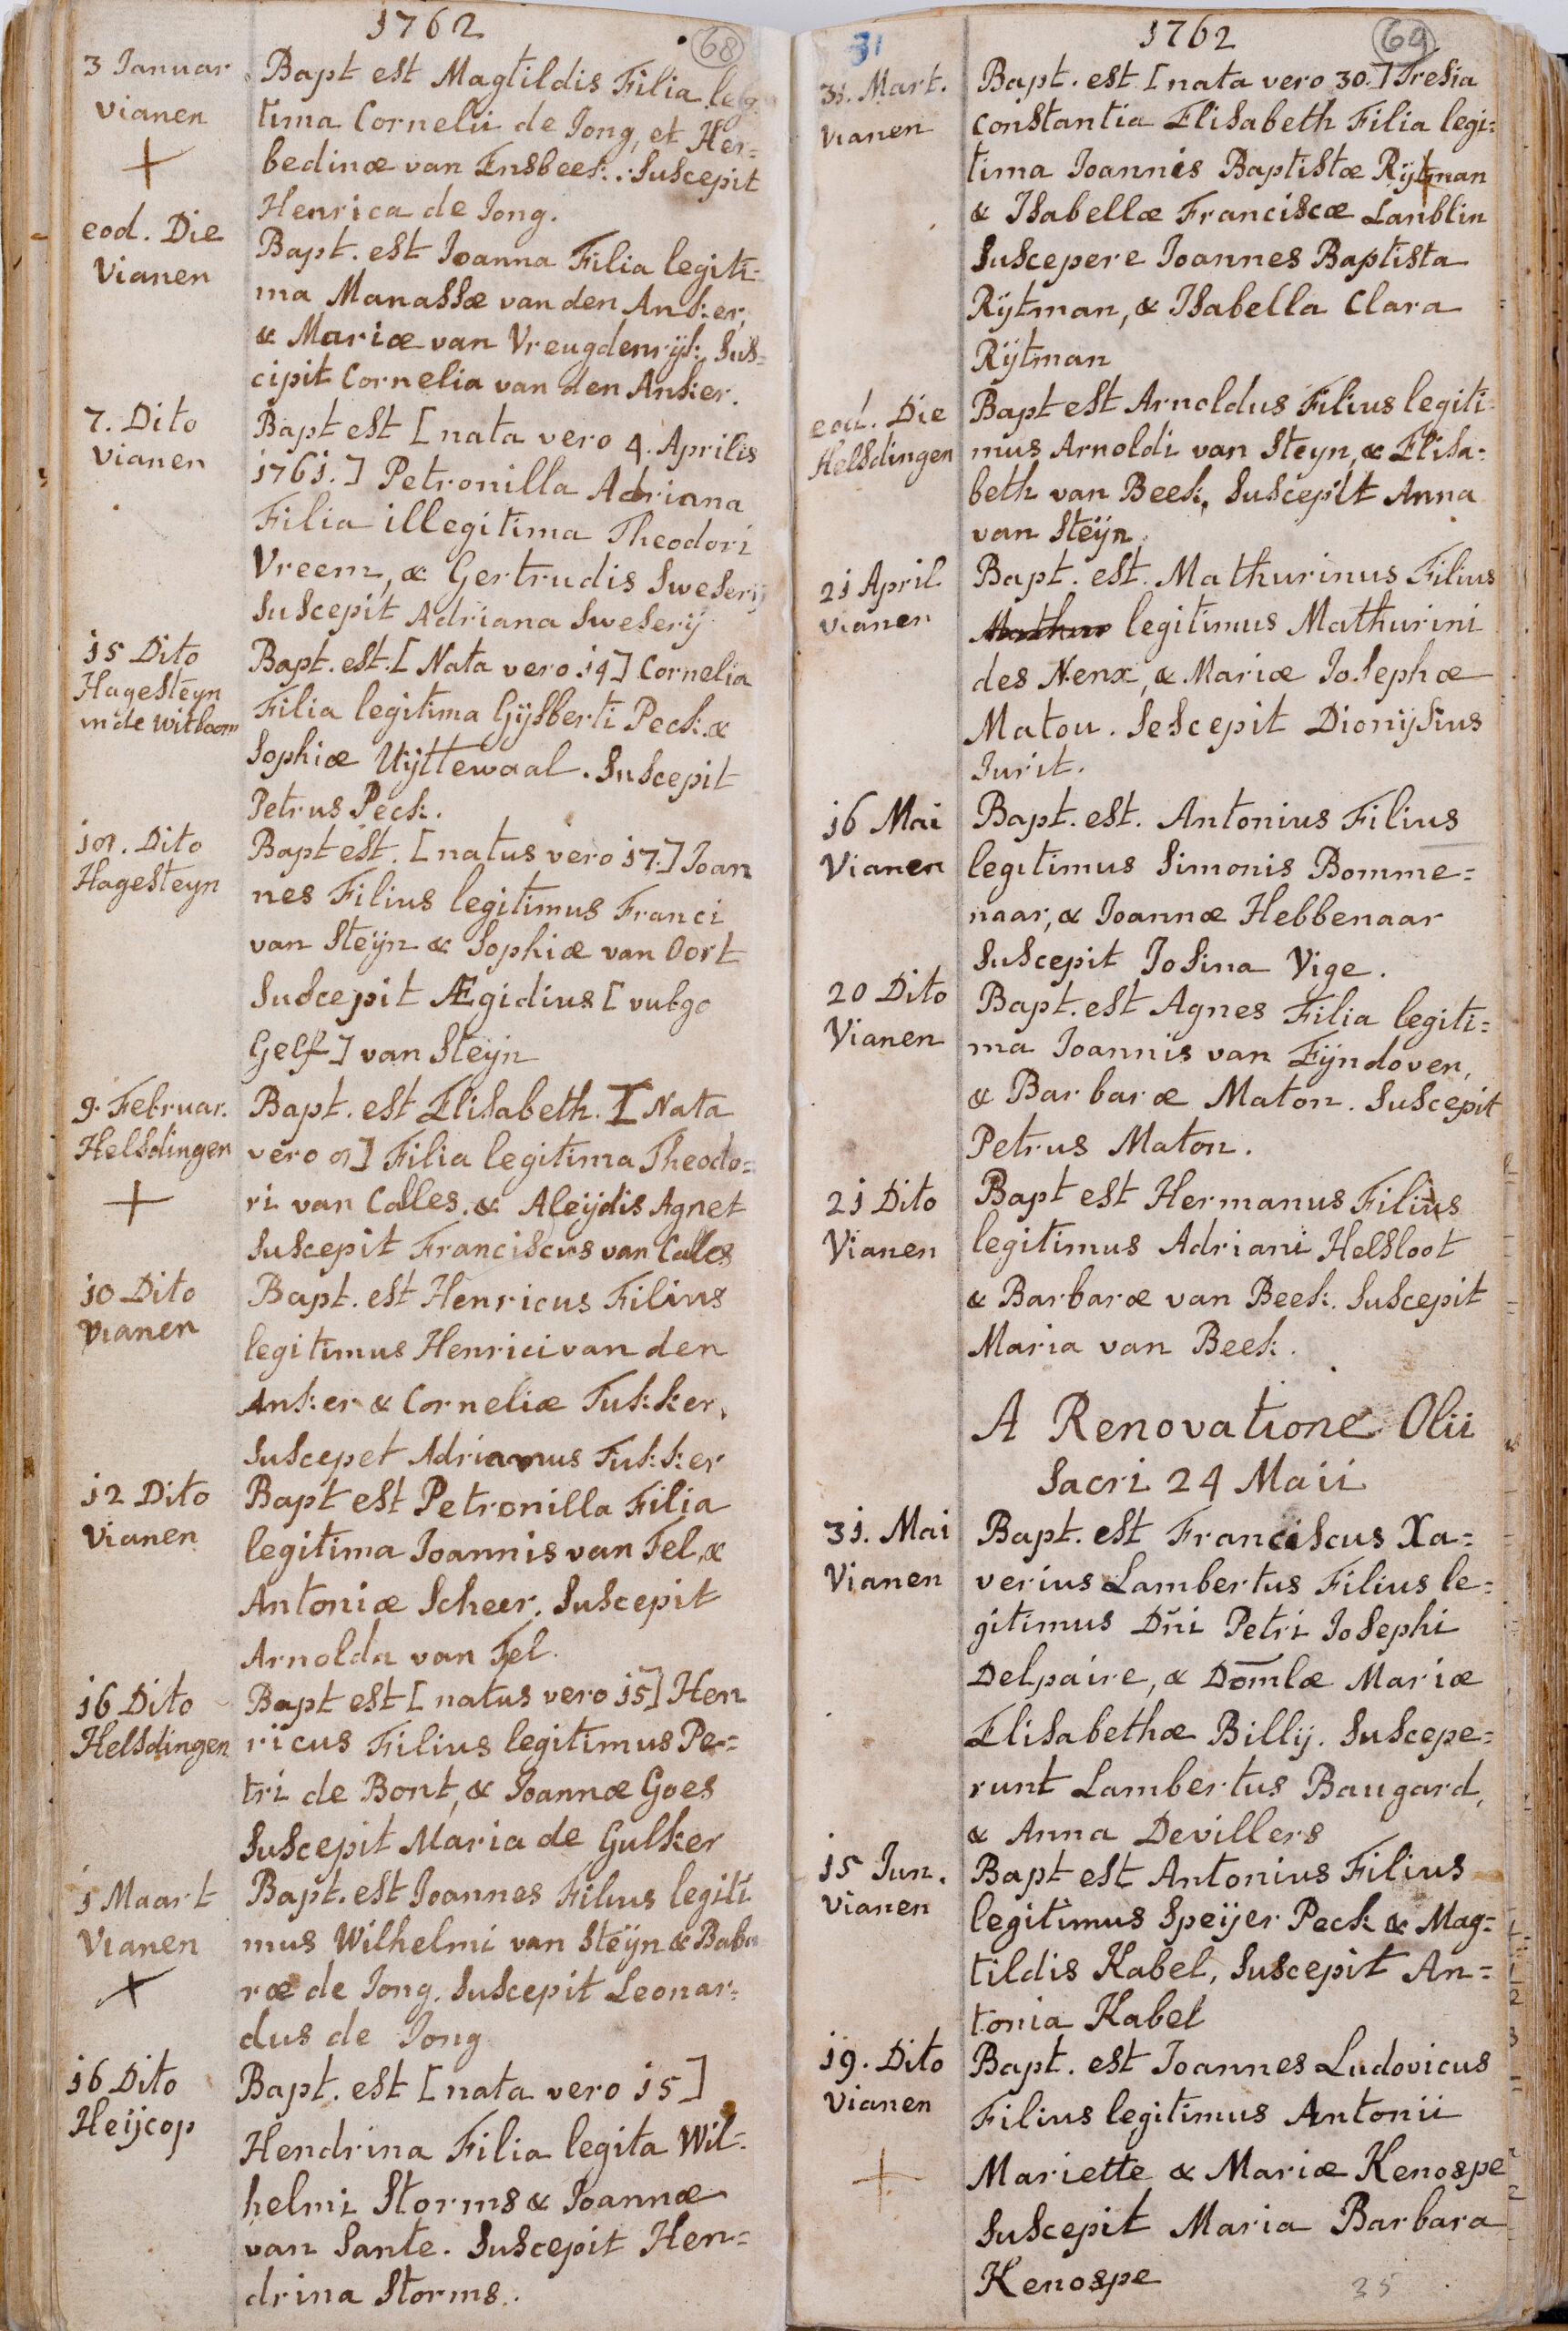 1762
68
3 Januar
Vianen
Bapt est Magtildis Filia legi
tima Cornelii de Jong, et Her=
bedinæ van Ensbeek. Suscepit
Henrica de Jong.
eod. Die
Vianen
Bapt. est Joanna Filia legiti=
ma Manassæ van den Anker,
& Mariæ van Vreugdenrijk, Sus=
cipit Cornelia van den Anker.
7. Dito
Vianen
Bapt est [nata vero 4. Aprilis
1761.] Petronilla Adriana
Filia illegitima Theodori
Vreem, & Gertrudis Sweserij
Suscepit Adriana Sweserij
15 Dito
Hagesteyn
in de Witboom
Bapt. est. [Nata vero 14] Cornelia
Filia legitima Gijsberti Peck &
Sophiæ Uijttewaal. Suscepit
Petrus Peck.
Dito
Hagesteyn
Bapt est. [natus vero 17.] Joan
nes Filius legitimus Franci
van Steijn & Sophiæ van Oort
Suscepit Ægidius [vulgo
Gelf] van Steijn
9. Februar.
Helsdingen
Bapt. est Elisabeth. [Nata
vero] Filia legitima Theodo=
ri van Calles. & Aleijdis Agnet
Suscepit Franciscus van Calles
10 Dito
Vianen
Bapt. est Henricus Filius
legitimus Henrici van den
Anker & Corneliæ Fukker,
Suscepet Adrianus Fukker
12 Dito
Vianen
Bapt est Petronilla Filia
legitima Joannis van Fel, &
Antoniæ Scheer. Suscepit
Arnolda van Fel.
16 Dito
Helsdingen
Bapt est [natus vero 15] Hen
ricus Filius legitimus Pe=
tri de Bont, & Joannæ Goes
Suscepit Maria de Gulker
1 Maart
Vianen
Bapt. est Joannes Filius legiti
mus Wilhelmi van Steijn & Baba
ræ de Jong. Suscepit Leonar=
dus de Jong
16 Dito
Heijcop
Bapt. est [nata vero 15]
Hendrina Filia legita Wil=
helmi Storms & Joannæ
van Sante. Suscepit Hen=
drina Storms.
31
1762
69
31. Mart.
Vianen
Bapt. est [nata vero 30.] Tresia
Constantia Elisabeth Filia legi=
tima Joannis Baptistæ Rytman
& Isabellæ Franciscæ Lanblin
Suscepere Joannes Baptista
Rijtman, & Isabella Clara
Rijtman
eod. Die
Helsdingen
Bapt est Arnoldus Filius legiti=
mus Arnoldi van Steyn, & Elisa=
beth van Beek, Suscepit Anna
van Steijn.
21 April
Vianen
Bapt. est. Mathurinus Filius
Mathur legitimus Mathurini
des Nenx, & Mariæ Josephæ
Matou. Sescepit Dionijsius
Jurit.
16 Mai
Vianen
Bapt. est. Antonius Filius
legitimus Simonis Bomme=
naar, & Joannæ Hebbenaar
Suscepit Josina Vige.
20 Dito
Vianen
Bapt. est Agnes Filia legiti=
ma Joannis van Eijndoven,
& Barbaræ Maton. Suscepit
Petrus Maton.
21 Dito
Vianen
Bapt est Hermanus Filius
legitimus Adriani Helsloot
& Barbaræ van Beek. Suscepit
Maria van Beek.
A Renovatione Olii
Sacri 24 Maii
31. Mai
Vianen
Bapt. est Franciscus Xa=
verius Lambertus Filius le=
gitimus Dñi Petri Josephi
Delpaire, & Domlæ Mariæ
Elisabethæ Billij. Suscepe=
runt Lambertus Baugard,
& Anna Devillers
15 Jun.
Vianen
Bapt est Antonius Filius
legitimus Speijer Peck & Mag=
tildis Kabel, Suscepit An=
tonia Kabel
19. Dito
Vianen
Bapt. est Joannes Ludovicus
Filius legitimus Antonii
Mariette & Mariæ Kenospe
Suscepit Maria Barbara
Kenospe
35